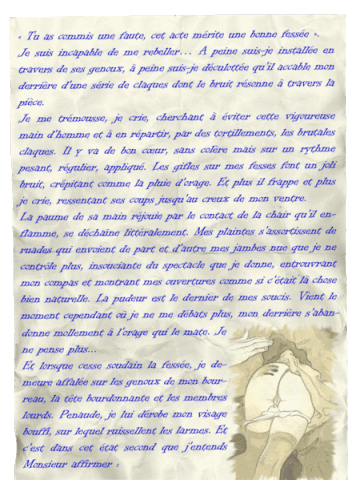 « Tu as commis une faute, cet acte mérite une bonne fessée ».
Je suis incapable de me rebeller... A peine suis-je installée en
travers de ses genoux, à peine suis-je déculottée qu'il accable mon
derrière d'une série de claques dont le bruit résonne à travers la
pièce.
Je me trémousse, je crie, cherchant à éviter cette vigoureuse
main d'homme et à en répartir, par des tortillements, les brutales
claques. Il y va de bon cœur, sans colère mais sur un rythme
pesant, régulier, appliqué. Les gifles sur mes fesses font un joli
bruit, crépitant comme la pluie d'orage. Et plus il frappe et plus
je crie, ressentant ses coups jusqu'au creux de mon ventre.
La paume de sa main réjouie par le contact de la chair qu'il en-
flamme, se déchaîne littéralement. Mes plaintes s'assortissent de
ruades qui envoient de part et d'autre mes jambes nue que je ne
contrôle plus, insouciante du spectacle que je donne, entrouvrant
mon compas et montrant mes ouvertures comme si c'était là chose
bien naturelle. La pudeur est le dernier de mes soucis. Vient le
moment cependant où je ne me débats plus, mon derrière s'aban-
donne mollement à l'orage qui le mate. Je
ne pense plus...
Et lorsque cesse soudain la fessée, je de-
meure affalée sur les genoux de mon bour-
reau, la tête bourdonnante et les membres
lourds. Penaude, je lui dérobe mon visage
bouffi, sur lequel ruissellent les larmes. Et
c'est dans cet état second que j'entends
Monsieur affirmer :